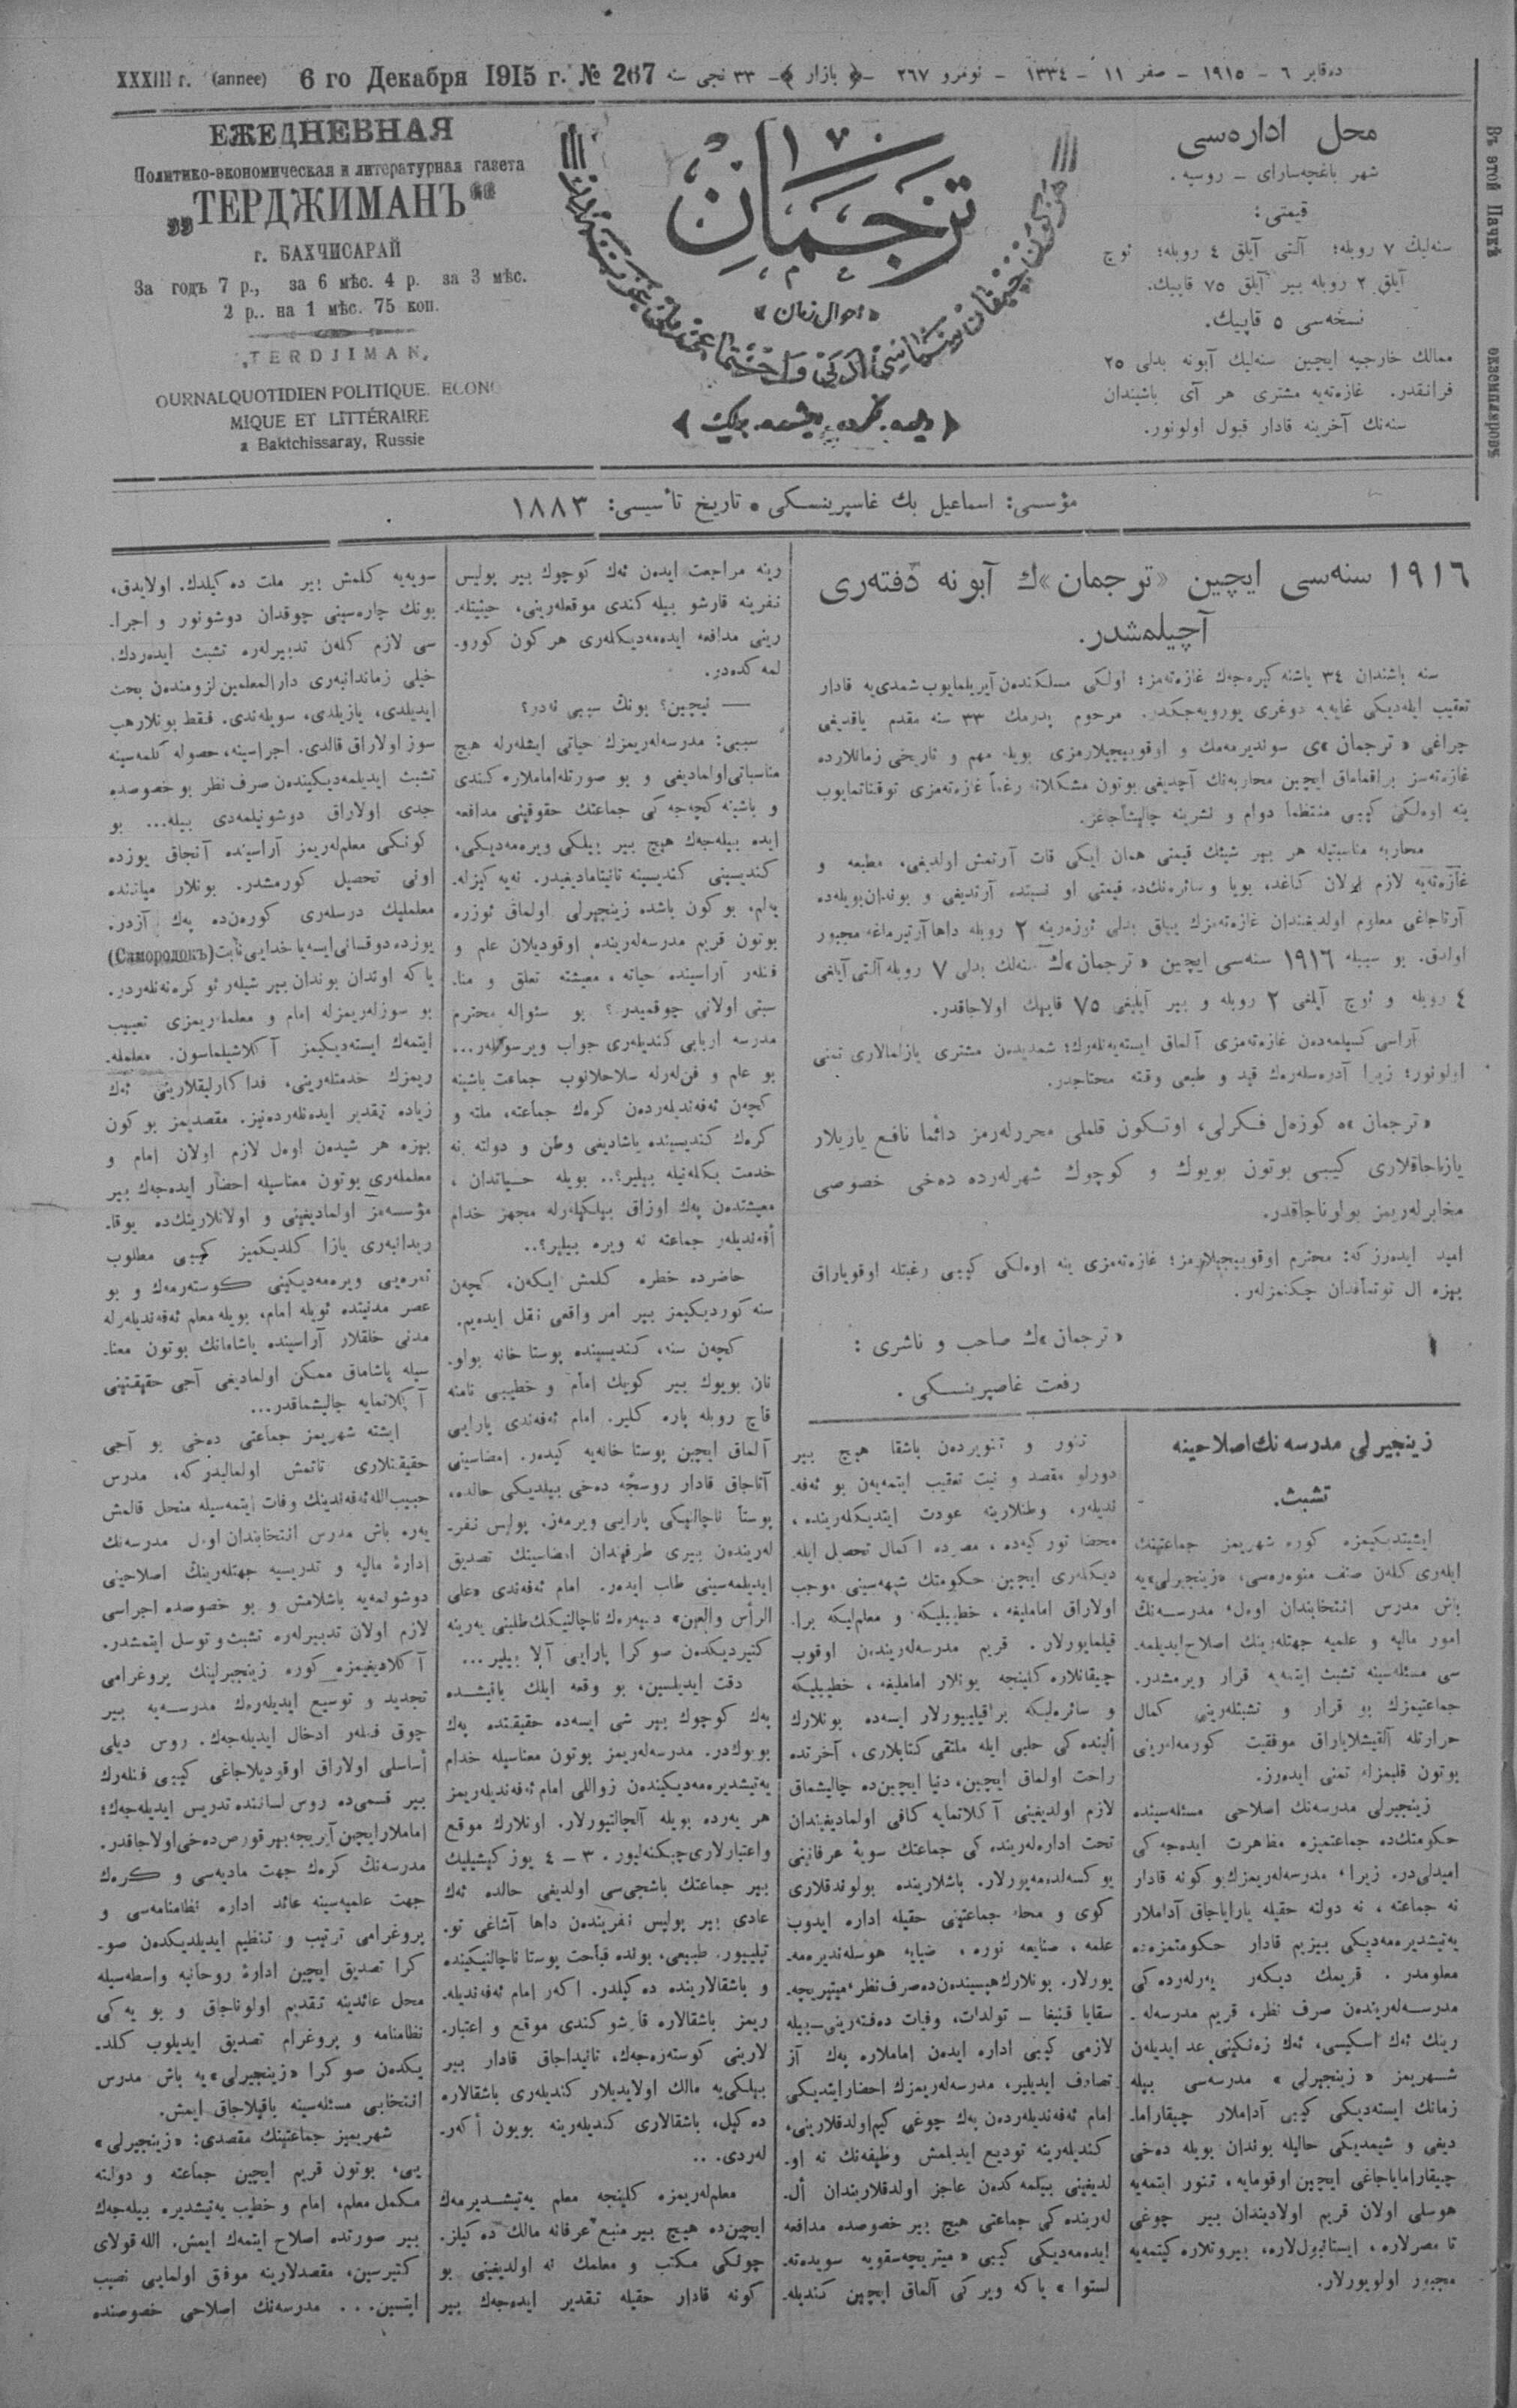 XXXIII г. (annee) 6 го Декабря 1915 г. № 267 ٣٣ نجی سنه -﴿ بازار ﴾- نومرو ٢٦٧ - صفر ١١ - ١٣٣٤ - ده‌قابر ٦ - ١٩١٥
ЕЖЕДНЕВНАЯ
Политико-экономическая и литературная газета
„ТЕРДЖИМАНЪ“
г. БАХЧИСАРАЙ
За годъ 7 р., за 6 мѣс. 4 р. за 3 мѣс.
2 р.. на 1 мѣс. 75 коп.
„TERDJIMAN„
OURNALQUOTIDIEN POLITIQUE. ECONO
MIQUE ET LITTÉRAIRE
a Baktchissaray, Russie
ترجمان
«احوال زمان»
﴿ دیلده، فکرده، ایشده بیرلك ﴾
محل اداره‌سی
شهر باغچه‌سارای – روسیه.
قیمتی:
سنه‌لیك ٧ روبله؛ آلتی آیلق ٤ روبله؛ ئوچ
آیلق ٢ روبله بیر آیلق ٧٥ قاپیك.
نسخه‌سی ٥ قاپیك.
ممالك خارجیه ایچین سنه‌لیك آبونه بدلی ٢٥
فرانقدر. غازه‌ته‌یه مشتری هر آی باشیندان
سنه‌نك آخرینه قادار قبول اولونور.
Въ этой Пачкѣ экземпляровъ
مؤسسی: اسماعیل بك غاسپرینسکی • تاریخ تأسیسی: ١٨٨٣
١٩١٦ سنه‌سی ایچین «ترجمان»ك آبونه دفته‌ری
آچیلمشدر.
سنه باشندان ٣٤ یاشنه کیره‌جه‌ك غازه‌ته‌مز؛ اولکی مسلکندن آیریلمایوب شمدی‌یه قادار
تعقیب ایله‌دیکی غایه‌یه دوغری یورویه‌جکدر. مرحوم پدرمك ٣٣ سنه مقدم یاقدیغی
چراغی «ترجمان»ی سوندیرمه‌مك و اوقوییجیلارمزی بویله مهم و تاریخی زمانلارده
غازه‌ته‌سز براقماماق ایچین محاربه‌نك آچدیغی بوتون مشکلاته رغماً غازه‌ته‌مزی توقتاتمایوب
ینه اوه‌لکی کیبی منتظما دوام و نشرینه چالیشاجاغز.
محاربه مناسبتیله هر بیر شیئك قیمتی همان ایکی قات آرتمش اولدیغی، مطبعه و
غازه‌ته‌یه لازم اولان کاغد، بویا و سائره‌نك‌ده قیمتی او نسبتده آرتدیغی و بوندان‌بویله‌ده
آرتاجاغی معلوم اولدیغندان غازه‌ته‌مزك ییلق بدلی ئوزه‌رینه ٢ روبله داها آرتیرماغه مجبور
اولدق. بو سببله ١٩١٦ سنه‌سی ایچین «ترجمان»ك سنه‌لك بدلی ٧ روبله آلتی آیلغی
٤ روبله و ئوچ آیلغی ٢ روبله و بیر آیلیغی ٧٥ قاپیك اولاجاقدر.
آراسی کسیلمه‌دن غازه‌ته‌مزی آلماق ایسته‌یه‌نله‌رك؛ شمدیدن مشتری یازلمالاری تمنی
اولونور؛ زیرا آدره‌سله‌ره‌ك قید و طبعی وقته محتاجدر.
«ترجمان»ه کوزه‌ل فکرلی، اوتکون قلملی محررله‌رمز دائما نافع یازیلار
یازاجاقلاری کیبی بوتون بویوك و کوچوك شهرله‌رده ده‌خی خصوصی
مخابرله‌ریمز بولوناجاقدر.
امید ایده‌رز که: محترم اوقوییجیلارمز؛ غازه‌ته‌مزی ینه اوه‌لکی کیبی رغبتله اوقویاراق
بیزه ال توتماقدان چکنمزله‌ر.
«ترجمان»ك صاحب و ناشری:
رفعت غاصپرینسکی.
زینجیرلی مدرسه‌نك اصلاحینه
تشبث.
ایشیتدیکیمزه کوره شهریمز جماعتینك
ایله‌ری کله‌ن صنف منوره‌سی، «زینجیرلی»یه
باش مدرس انتخابندان اوه‌ل مدرسه‌نك
امور مالیه و علمیه جهتله‌رینك اصلاح‌ایدیلمه-
سی مسئله‌سینه تشبث ایتمه‌یه قرار ویرمشدر.
جماعتیمزك بو قرار و تشبثله‌رینی کمال
حرارتله آلقیشلایاراق موفقیت کورمه‌له‌رینی
بوتون قلبمزله تمنی ایده‌رز.
زینجیرلی مدرسه‌نك اصلاحی مسئله‌سینده
حکومتك‌ده جماعتمیزه مظاهرت ایده‌جه‌کی
امیدلی‌در. زیرا، مدرسه‌له‌ریمزك بو کونه قادار
نه جماعته، نه دولته حقیله یارایاجاق آداملار
یه‌تیشدیره‌مه‌دیکی بیزیم قادار حکومتمزه‌ده
معلومدر. قریمك دیکه‌ر یه‌رله‌رده‌کی
مدرسه‌له‌ریندن صرف نظر، قریم مدرسه‌له-
رینك ئه‌ك اسکیسی، ئه‌ك زه‌نکینی عد ایدیله‌ن
شهریمز «زینجیرلی» مدرسه‌سی بیله
زمانك ایسته‌دیکی کیبی آداملار چیقاراما-
دیغی و شیمدیکی حالیله بوندان بویله ده‌خی
چیقارامایاجاغی ایچین اوقومایه، تنور ایتمه‌یه
هوسلی اولان قریم اولادیندان بیر چوغی
تا مصرلاره، ایستانبول‌لاره، بیروتلاره کیتمه‌یه
مجبور اولویورلار.
تنور و تنویردن باشقا هیچ بیر
دورلو مقصد و نیت تعقیب ایتمه‌یه‌ن بو ئه‌فه-
ندیله‌ر، وطنلارینه عودت ایتدیکله‌رینده،
محضا تورکیه‌ده، مصرده اکمال تحصیل ایله-
دیکله‌ری ایچین حکومتك شبهه‌سینی موجب
اولاراق اماملیغه، خطیبلیکه و معلم‌لیکه برا-
قیلمایورلار. قریم مدرسه‌له‌ریندن اوقوب
چیقانلاره کلینجه بونلار اماملیغه، خطیبلیکه
و سائره‌لیکه براقیلییورلار ایسه‌ده بونلارك
ألینده‌کی حلبی ایله ملتقی کتابلاری، آخرتده
راحت اولماق ایچین، دنیا ایچین‌ده چالیشماق
لازم اولدیغینی آکلاتمایه کافی اولمادیغیندان
تحت اداره‌له‌رینده‌کی جماعتك سویهٔ عرفانینی
یوکسه‌لده‌مه‌یورلار. باشلارینده بولوندقلاری
کوی و محله جماعتینی حقیله اداره ایدوب
علمه، صنایعه نوره، ضیایه هوسله‌ندیره‌مه-
یورلار. بونلارك‌هپسیندن‌ده صرف نظر، میتریچه-
سقایا قنیغا – تولدات، وفیات ده‌فته‌رینی-بیله
لازمی کیبی اداره ایده‌ن اماملاره په‌ك آز
تصادف ایدیلیر، مدرسه‌له‌ریمزك احضارایتدیکی
امام ئه‌فه‌ندیله‌رده‌ن په‌ك چوغی کیم‌اولدقلارینی،
کندیله‌رینه تودیع ایدیلمش وظیفه‌نك نه او-
لدیغینی بیلمه‌کدن عاجز اولدقلاریندان أل-
له‌رینده‌کی جماعتی هیچ بیر خصوصده مدافعه
ایده‌مه‌دیکی کیبی «میتریچه‌سقویه سویده‌ته-
لستوا» یاکه ویرکی آلماق ایچین کندیله-
رینه مراجعت ایده‌ن ئه‌ك کوچوك بیر پولیس
نفرینه قارشو بیله کندی موقعله‌رینی، حیثیتله-
رینی مدافعه ایده‌مه‌دیکله‌ری هرکون کورو-
لمه‌کده‌در.
— نیچین؟ بونك سببی نه‌در؟
سببی: مدرسه‌له‌ریمزك حیاتی ایشله‌رله هیچ
مناسباتی اولمادیغی و بو صورتله‌اماملاره کندی
و باشینه کچه‌جه‌کی جماعتك حقوقینی مدافعه
ایده بیله‌جه‌ك هیچ بیر بیلکی ویره‌مه‌دیکی،
کندیسینی کندیسینه تانیتامادیغیدر. نه‌یه کیزله-
یه‌لم، بو کون باشده زینجیرلی اولماق ئوزره
بوتون قریم مدرسه‌له‌رینده اوقودیلان علم و
فنله‌ر آراسینده حیاته، معیشته تعلق و منا-
سبتی اولانی چوقمیدر؟ بو سئواله محترم
مدرسه اربابی کندیله‌ری جواب ویرسونله‌ر...
بو علم و فن‌له‌رله سلاحلانوب جماعت باشینه
کچه‌ن ئه‌فه‌ندیله‌رده‌ن کره‌ك جماعته، ملته و
کره‌ك کندیسینده یاشادیغی وطن و دولته نه
خدمت بکله‌نیله بیلیر؟.. بویله حیاتدان،
معیشتده‌ن په‌ك اوزاق بیلکیله‌رله مجهز خدام
أفه‌ندیله‌ر جماعته نه ویره بیلیر؟..
حاضرده خطره کلمش ایکه‌ن، کچه‌ن
سنه کوردیکیمز بیر امر واقعی نقل ایده‌یم.
کچه‌ن سنه، کندیسینده پوستا خانه بولو-
نان بویوك بیر کویك امام و خطیبی نامنه
قاچ روبله پاره کلیر. امام ئه‌فه‌ندی پارایی
آلماق ایچین پوستا خانه‌یه کیده‌ر. امضاسینی
آتاجاق قادار روسچه ده‌خی بیلدیکی حالده،
پوستا ناچالنیکی پارایی ویرمه‌ز. پولیس نفر-
له‌رینده‌ن بیری طرفیندان امضاسینك تصدیق
ایدیلمه‌سینی طلب ایده‌ر. امام ئه‌فه‌ندی «علی
الرأس والعین» دییه‌ره‌ك ناچالنیکك طلبنی یه‌رینه
کتیردیکده‌ن صوکرا پارایی آلا بیلیر...
دقت ایدیلسین، بو وقعه ایلك باقیشده
په‌ك کوچوك بیر شی ایسه‌ده حقیقتده په‌ك
بویوك‌در. مدرسه‌له‌ریمز بوتون معناسیله خدام
یه‌تیشدیره‌مه‌دیکینده‌ن زواللی امام ئه‌فه‌ندیله‌ریمز
هر یه‌رده بویله آلچالتیورلار. اونلارك موقع
و اعتبارلاری چیکنه‌نیور. ٣ – ٤ یوز کیشیلیك
بیر جماعتك باشچی‌سی اولدیغی حالده ئه‌ك
عادی بیر پولیس نفرینده‌ن داها آشاغی تو-
تیلییور. طبیعی، بونده قباحت پوستا ناچالنیکینده
و باشقالارینده ده‌کیلدر. اکه‌ر امام ئه‌فه‌ندیله-
ریمز باشقالاره قارشو کندی موقع و اعتبار-
لارینی کوسته‌ره‌جه‌ك، تانیداجاق قادار بیر
بیلکی‌یه مالك اولایدیلار کندیله‌ری باشقالاره
ده‌کیل، باشقالاری کندیله‌رینه بویون أکه‌ر-
له‌ردی...
معلم‌له‌ریمزه کلینجه معلم یه‌تیشدیرمه‌ك
ایچین‌ده هیچ بیر منبع عرفانه مالك ده‌کیلز.
چونکی مکتب و معلمك نه اولدیغینی بو
کونه قادار حقیله تقدیر ایده‌جه‌ك بیر
سویه‌یه کلمش بیر ملت ده‌کیلدك. اولایدق،
بونك چاره‌سینی چوقدان دوشونور و اجرا-
سی لازم کله‌ن تدبیرله‌ره تشبث ایده‌ردك.
خیلی زماندانبه‌ری دارالمعلمین لزومنده‌ن بحث
ایدیلدی، یازیلدی، سویله‌ندی. فقط بونلارهپ
سوز اولاراق قالدی. اجراسینه، حصوله کلمه‌سینه
تشبث ایدیلمه‌دیکینده‌ن صرف نظر بو خصوصده
جدی اولاراق دوشونیلمه‌دی بیله... بو
کونکی معلم‌له‌ریمز آراسینده آنجاق یوزده
اونی تحصیل کورمشدر. بونلار میاننده
معلملیك درسله‌ری کوره‌ن‌ده په‌ك آزدر.
یوزده دوقسانی ایسه‌یا خدایی نابت (Самородокъ)
یاکه اوندان بوندان بیر شیله‌ر ئوکره‌نه‌نله‌ردر.
بو سوزله‌ریمزله امام و معلمله‌ریمزی تعییب
ایتمه‌ك ایسته‌دیکیمز آکلاشیلماسون. معلمله-
ریمزك خدمتله‌رینی، فداکارلیقلارینی ئه‌ك
زیاده تقدیر ایده‌نله‌رده‌نیز. مقصدیمز بو کون
بیزه هر شیده‌ن اوه‌ل لازم اولان امام و
معلمله‌ری بوتون معناسیله احضار ایده‌جه‌ك بیر
مؤسسه‌مز اولمادیغینی و اولانلارینك‌ده یوقا-
ریدانبه‌ری یازا کلدیکمیز کیبی مطلوب
ثمره‌یی ویره‌مه‌دیکینی کوسته‌رمه‌ك و بو
عصر مدنیتده ئویله امام، بویله معلم ئه‌فه‌ندیله‌رله
مدنی خلقلار آراسینده یاشامانك بوتون معنا-
سیله یاشاماق ممکن اولمادیغی آجی حقیقتینی
آکلاتمایه چالیشماقدر...
ایشته شهریمز جماعتی ده‌خی بو آجی
حقیقتلاری تاتمش اولمالیدر که، مدرس
حبیب‌الله ئه‌فه‌ندینك وفات ایتمه‌سیله منحل قالمش
یه‌ره باش مدرس انتخابندان اول مدرسه‌نك
ادارهٔ مالیه و تدریسیه جهتله‌رینك اصلاحینی
دوشونمه‌یه باشلامش و بو خصوصده اجراسی
لازم اولان تدبیرله‌ره تشبث و توسل ایتمشدر.
آکلادیغیمزه کوره زینجیرلینك پروغرامی
تجدید و توسیع ایدیله‌ره‌ك مدرسه‌یه بیر
چوق فنله‌ر ادخال ایدیله‌جه‌ك. روس دیلی
أساسلی اولاراق اوقودیلاجاغی کیبی فنله‌رك
بیر قسمی‌ده روس لساننده تدریس ایدیله‌جه‌ك؛
اماملار ایچین آیریجه بیر قورص ده‌خی اولاجاقدر.
مدرسه‌نك کره‌ك جهت مادیه‌سی و کره‌ك
جهت علمیه‌سینه عائد اداره نظامنامه‌سی و
پروغرامی ترتیب و تنظیم ایدیلدیکده‌ن صو-
کرا تصدیق ایچین ادارهٔ روحانیه واسطه‌سیله
محل عائدینه تقدیم اولوناجاق و بو یه‌کی
نظامنامه و پروغرام تصدیق ایدیلوب کلد-
یکده‌ن صوکرا «زینجیرلی»یه باش مدرس
انتخابی مسئله‌سینه باقیلاجاق ایمش.
شهریمیز جماعتینك مقصدی: «زینجیرلی»
یی، بوتون قریم ایچین جماعته و دولته
مکمل معلم، امام و خطیب یه‌تیشدیره بیله‌جه‌ك
بیر صورتده اصلاح ایتمه‌ك ایمش. الله قولای
کتیرسین، مقصدلارینه موفق اولمایی نصیب
ایتسین... مدرسه‌نك اصلاحی خصوصنده